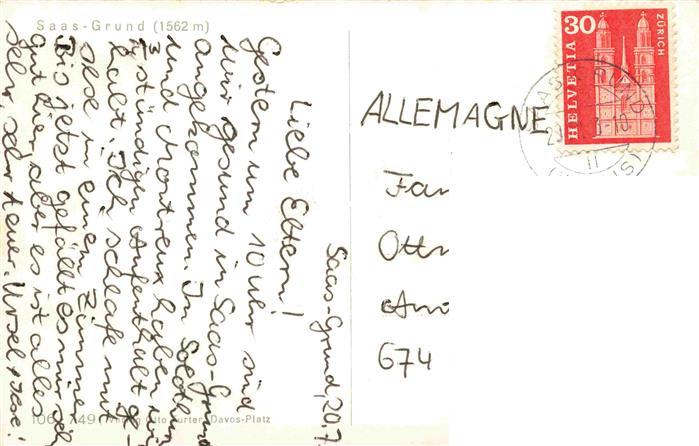 Saas-Grund (1562 m)
Saas-Grund, 20.7
Liebe Eltern!
Gestern um 10 Uhr sind
wir gesund in Saas-Grund
angekommen. In Solothurn
und Montreux haben wir
3 stündigen Aufenthalt ge-
habt. Ich schlafe mit
in einem Zimmer
Bis jetzt gefällt es mir sehr
gut hier, aber es ist alles
sehr, sehr teuer. Ursel
ALLEMAGNE
Fam
Ott
674
30
HELVETIA
ZÜRICH
SAAS-GRUND
Davos-Platz